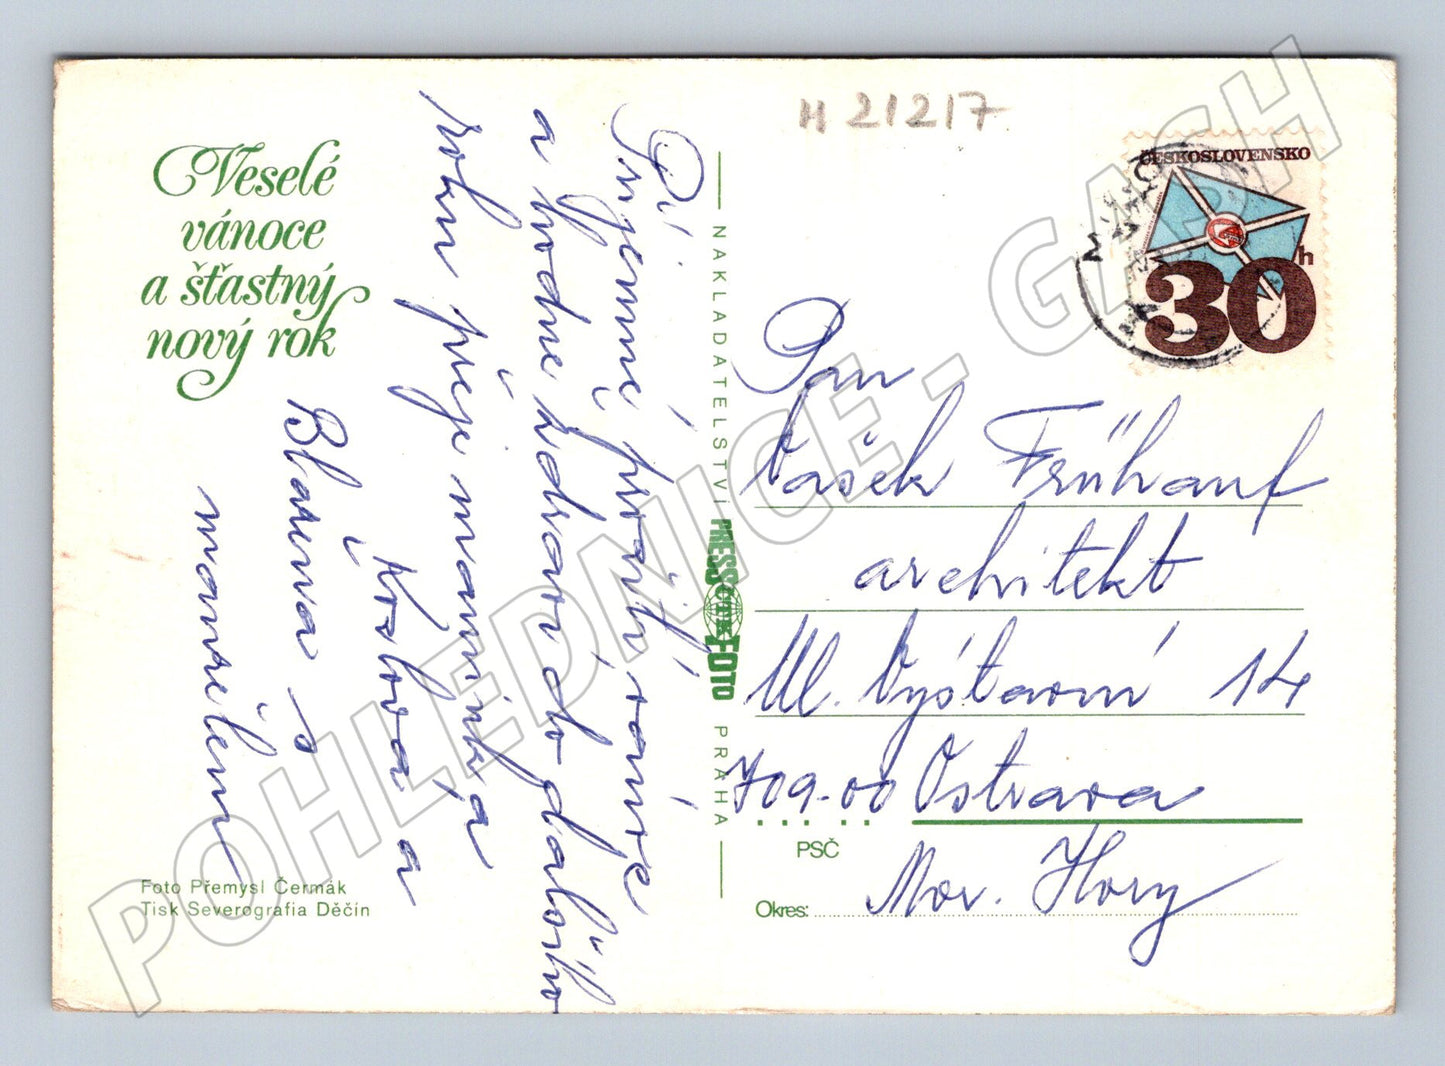 H 21217
Veselé
vánoce
a šťastný
nový rok
Příjemné prožití vánoc
a hodně zdraví do dalšího
roku přeje maminka
Králová a
Blanka s
manželem
Foto Přemysl Čermák
Tisk Severografia Děčín
NAKLADATELSTVÍ PRESSFOTO PRAHA
ČTK
ČESKOSLOVENSKO
30 h
Pan
Vašek Frühauf
architekt
Ul. Výstavní 14
709-00 Ostrava
PSČ
Mor. Hory
Okres:
POHLEDNICE - GASH